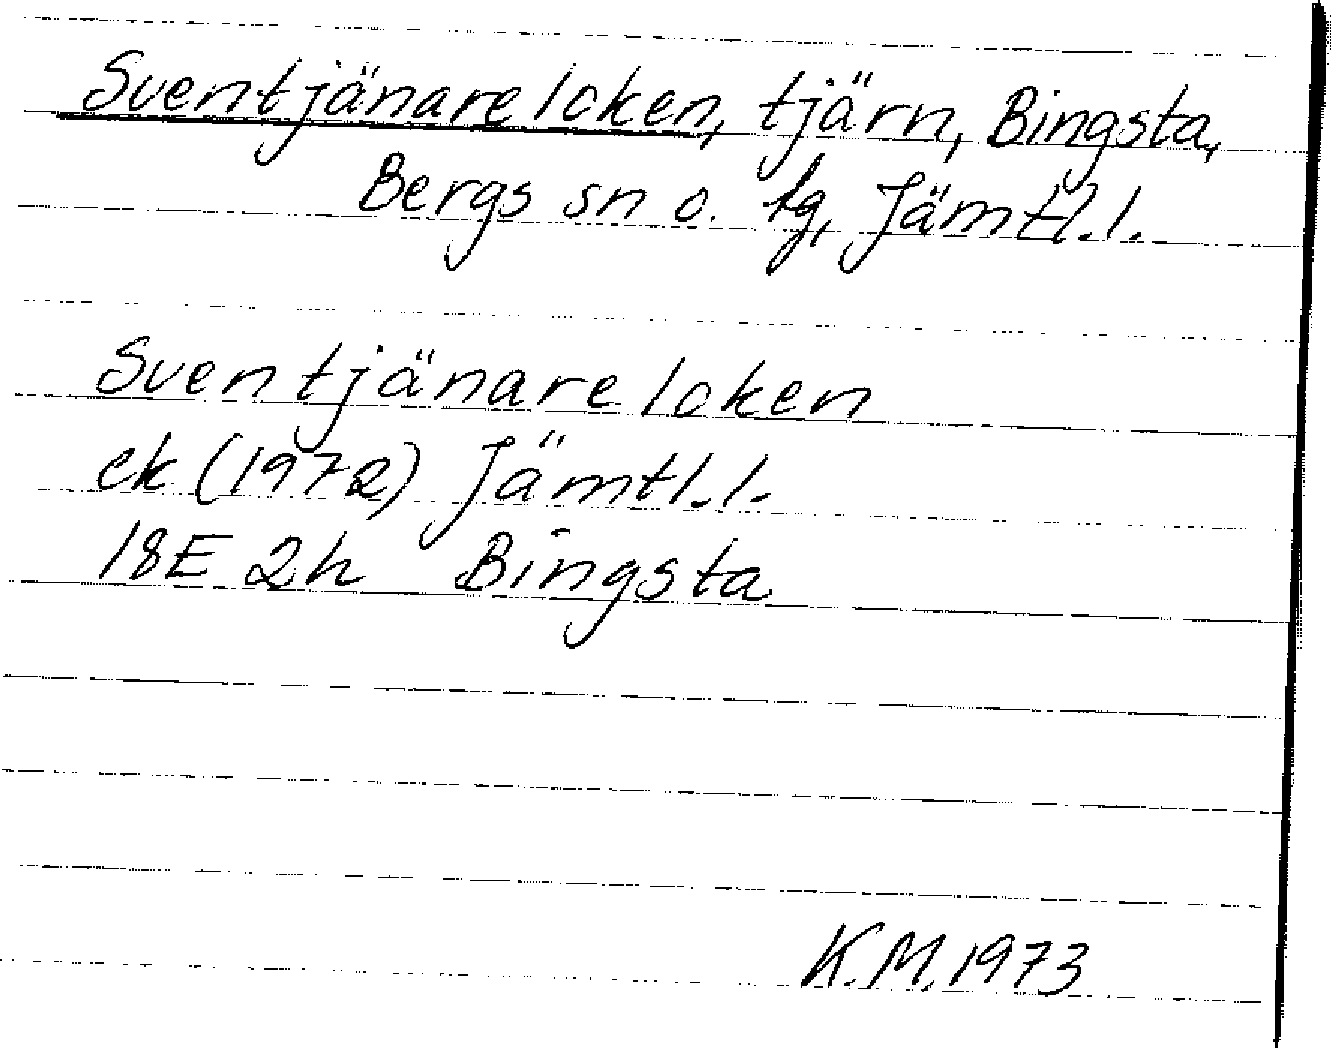 Sventjänareloken, tjärn, Bingsta,
Bergs sn o. tg, Jämtl.l.
Sventjänareloken
ek (1972) Jämtl.l.
18E 2h Bingsta
K.M. 1973